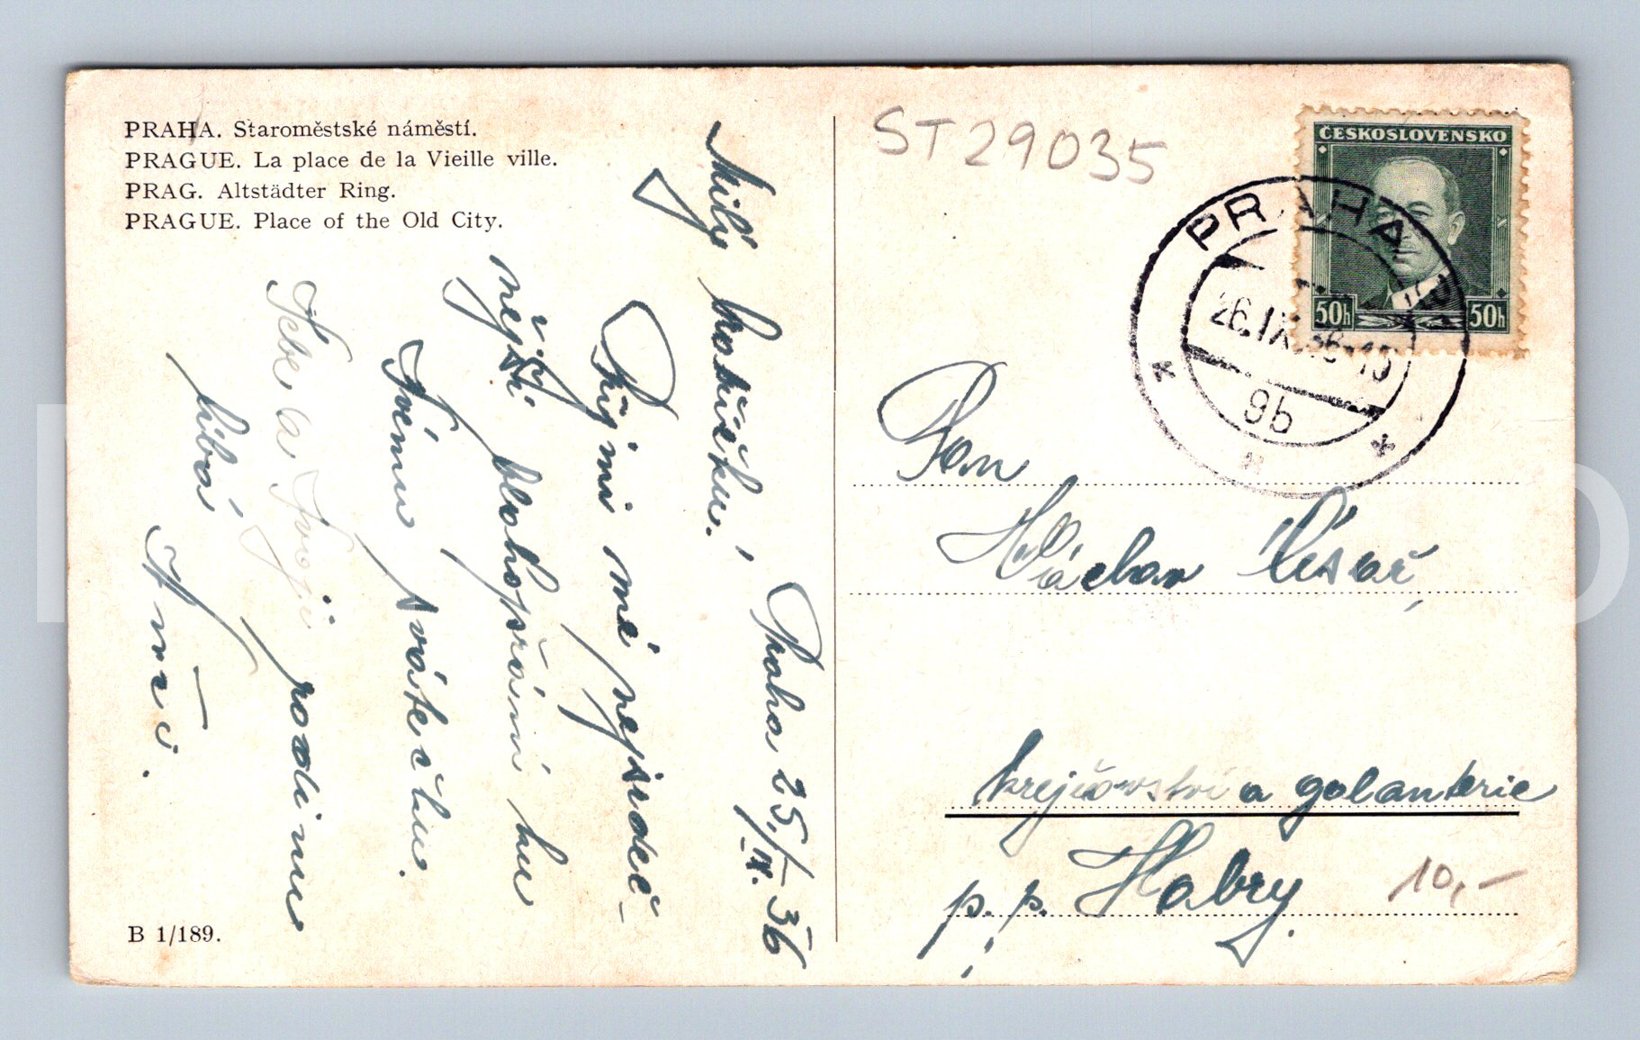 PRAHA. Staroměstské náměstí.
PRAGUE. La place de la Vieille ville.
PRAG. Altstädter Ring.
PRAGUE. Place of the Old City.
Praha 25./IX. 36
Milý bratříčku!
Přijmi mé nejsrdeč-
nější blahopřání ku
Tvému svátečku.
Tebe a Tvoji rodinu
líbá
B 1/189.
ST29035
ČESKOSLOVENSKO
50h 50h
PRAHA
26.IX.
9b
Pan
Václav Císař,
krejčovství a galanterie
p. p. Habry.
10,-